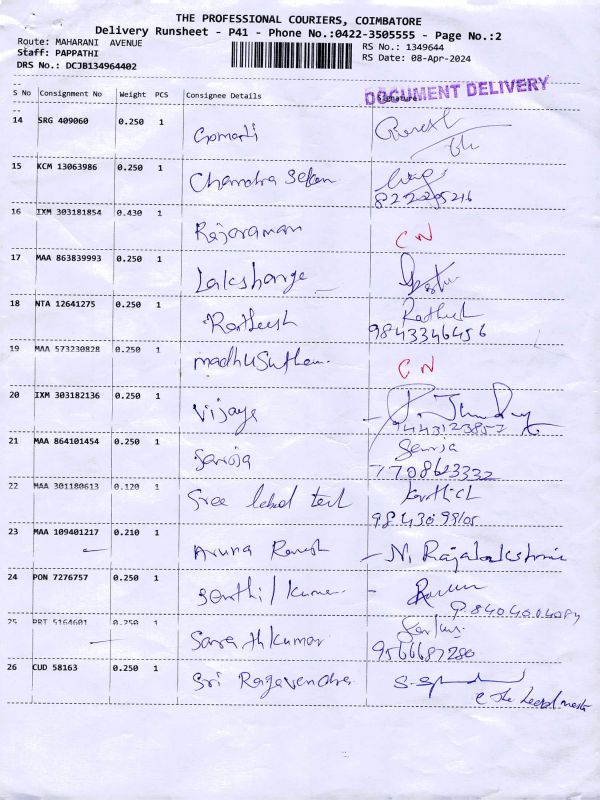 THE PROFESSIONAL COURIERS, COIMBATORE
Delivery Runsheet - P41 - Phone No.:0422-3505555 - Page No.:2
Route: MAHARANI AVENUE RS No.: 1349644
Staff: PAPPATHI RS Date: 08-Apr-2024
DRS No.: DCJB134964402
DOCUMENT DELIVERY
S No Consignment No Weight PCS Consignee Details Signature
14 SRG 409060 0.250 1 Gomati
15 KCM 13063986 0.250 1 Chandra Sekar
8222295216
16 IXM 303181854 0.430 1 Rajaraman CN
17 MAA 863839993 0.250 1
18 NTA 12641275 0.250 1 Ratheesh Rathish
9843346456
19 MAA 573230828 0.250 1 CN
20 IXM 303182136 0.250 1 Vijaya
9443123857
21 MAA 864101454 0.250 1 Saroja
7708623332
22 MAA 301180613 0.120 1 Sree Karthick
23 MAA 109401217 0.210 1 Aruna Ramesh - N. Rajalakshmi
24 PON 7276757 0.250 1 Senthil Kumar -
25 PRT 5164601 0.250 1 Sarathkumar
9566687280
26 CUD 58163 0.250 1 Sri Ragavendra